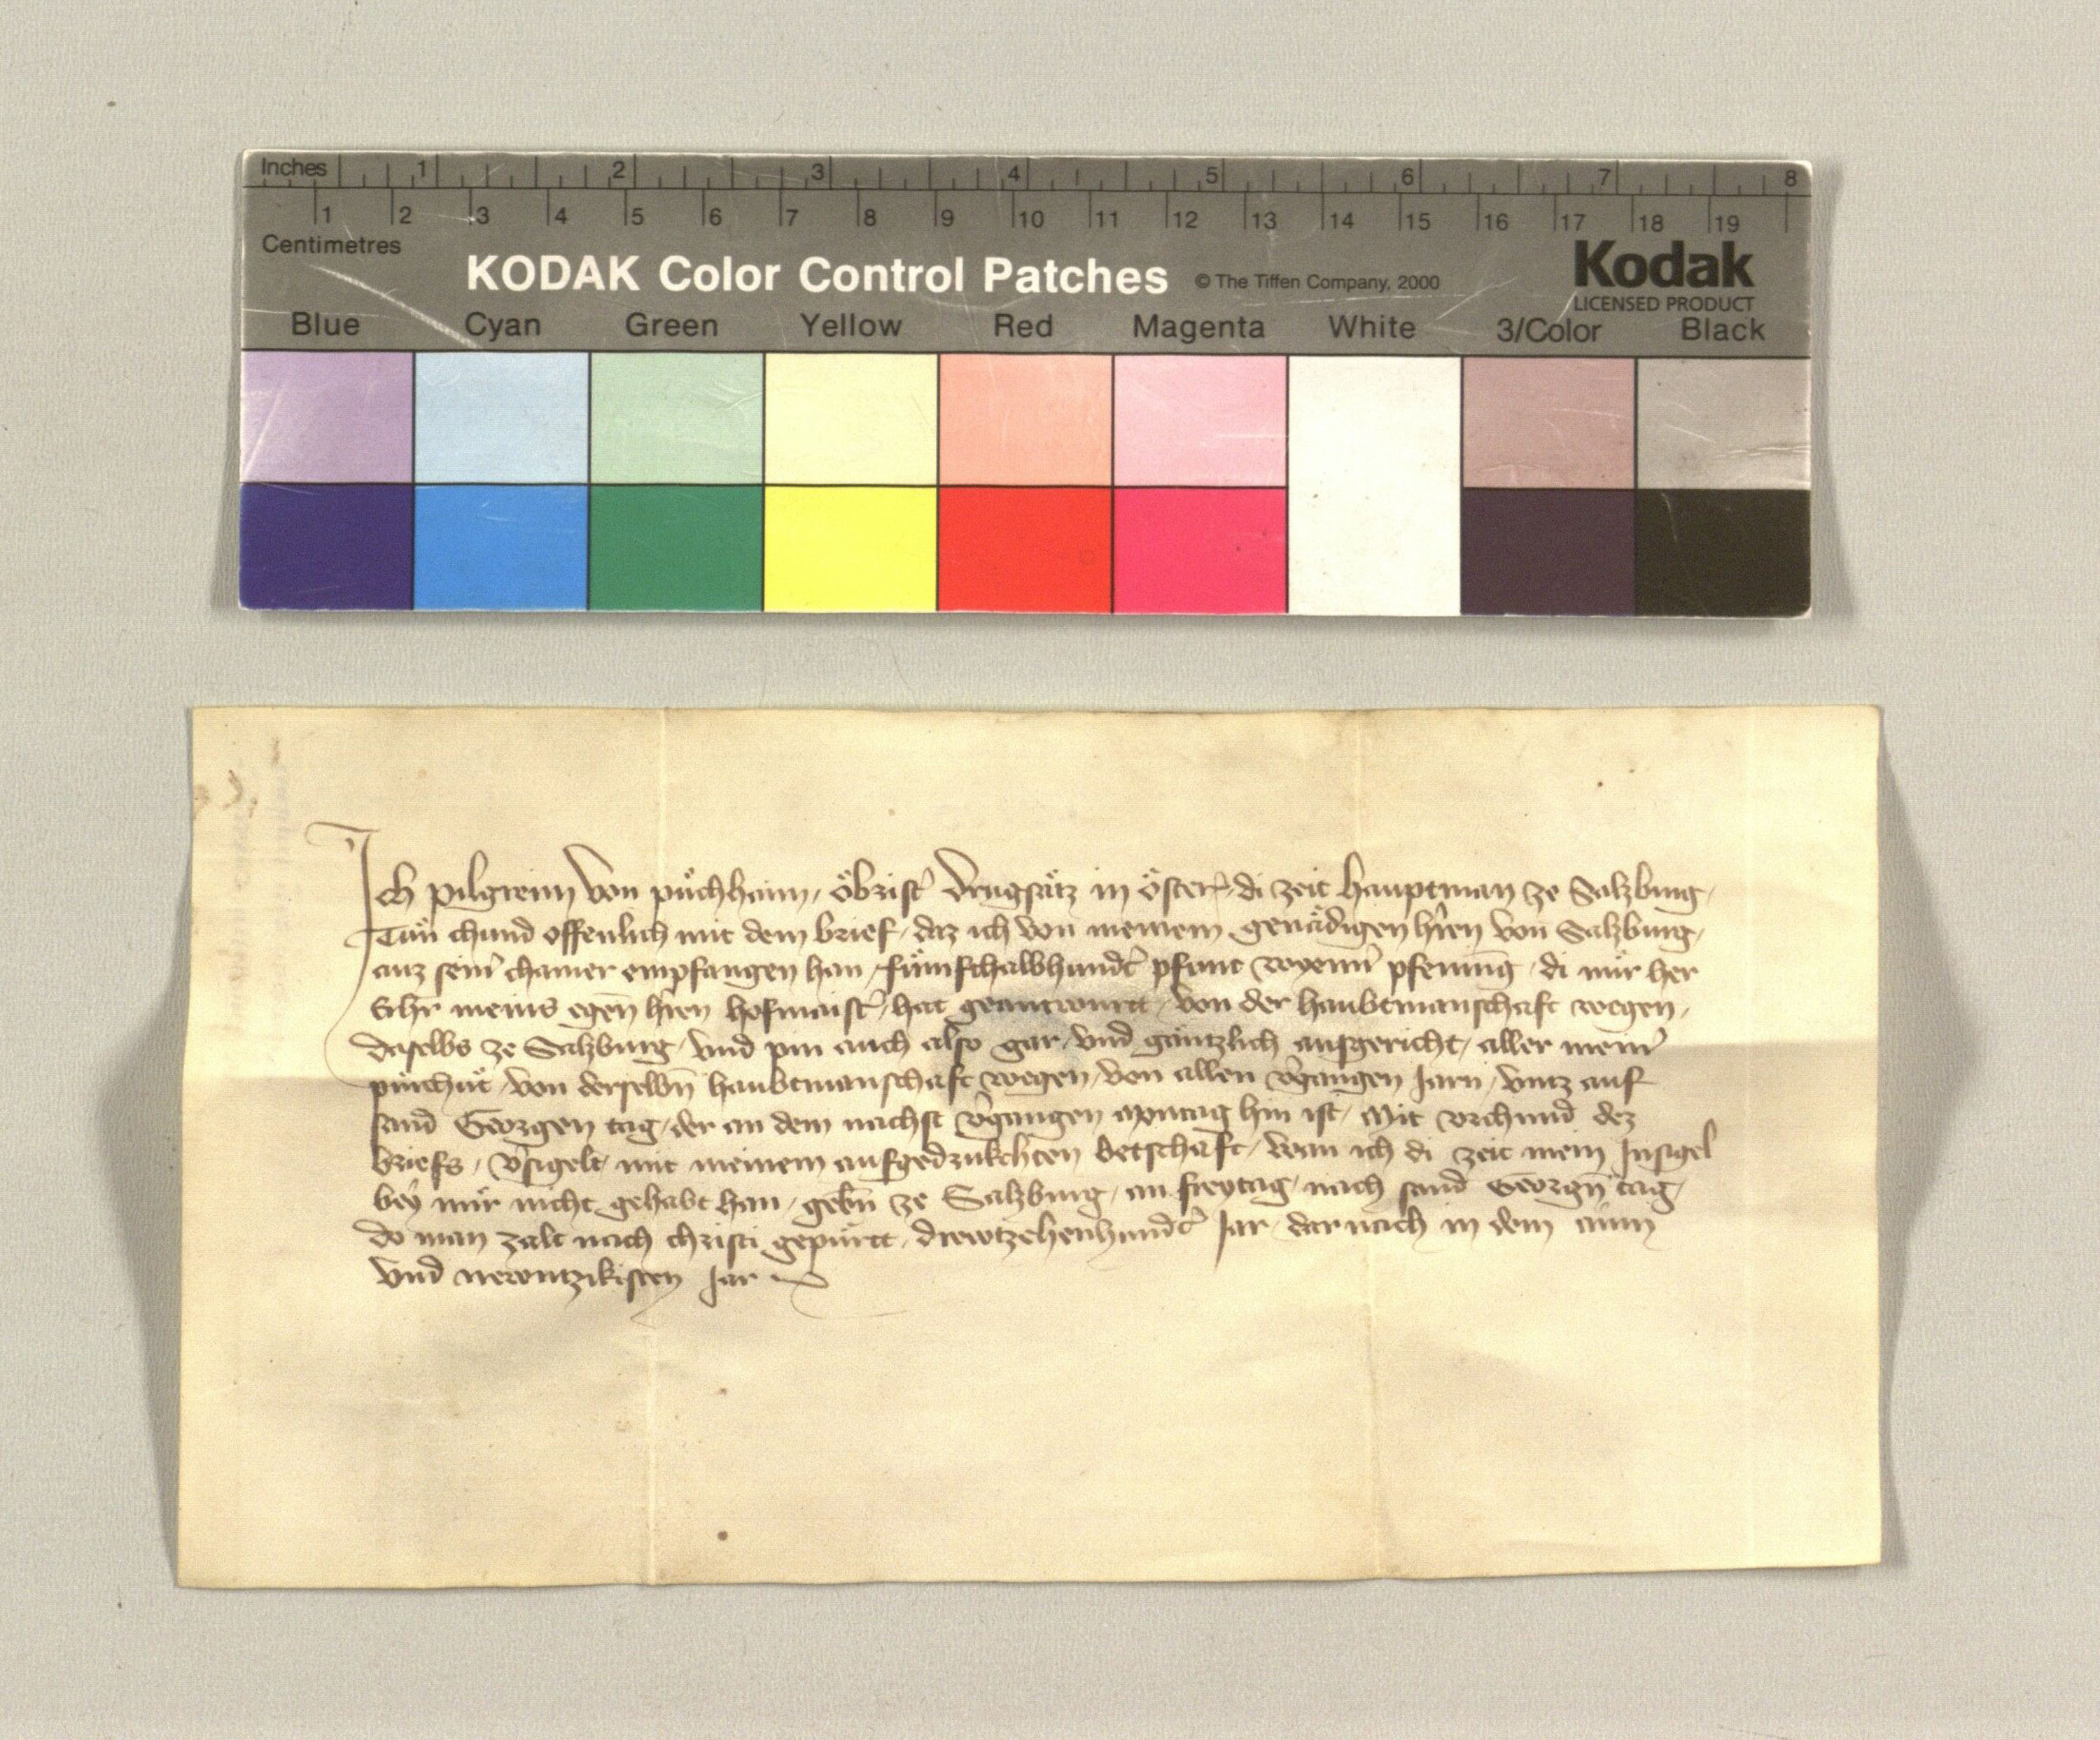 Inches 1 2 3 4 5 6 7 8
1 2 3 4 5 6 7 8 9 10 11 12 13 14 15 16 17 18 19
Centimetres
KODAK Color Control Patches © The Tiffen Company, 2000 Kodak
LICENSED PRODUCT
Blue Cyan Green Yellow Red Magenta White 3/Color Black
Ich pilgreim von půchhaim, öbrist͛ drugsätz in öster͛, di zeit hauptman ze Salzburg,
Tůn chund offenlich mit dem brief, daz ich von meinem genädigen h͛ren von Salzburg,
auz sein͛ chamer empfangen han, fümfthalbhundt͛ pfunt wyenn͛ pfening, di mir her
meins egen̄ h͛ren hofmaist͛, hat geantwurtt, von der haubtmanschaft wegen,
daselbs ze Salzburg, und pin auch also gar, und gäntzlich ausgericht, aller mein͛
purchhůt, von derselbn̄ haubtmanschaft wegen, von allen v͛gangen Jarn, untz auf
sand Georgen tag, der an dem nachst v͛gangen montag hin ist, Mit urchund dez
briefs, v͛sigelt, mit meinem aufgedrukchten betschaft, wan ich di zeit mein Insigel
bey mir nicht gehabt han, gebn̄ ze Salzburg, an freytag, nach sand Georgn̄ tag,
do man zalt nach christi gepurtt, drewtzehenhundt͛ Jar, darnach in dem ainn
und newntzikisten Jar